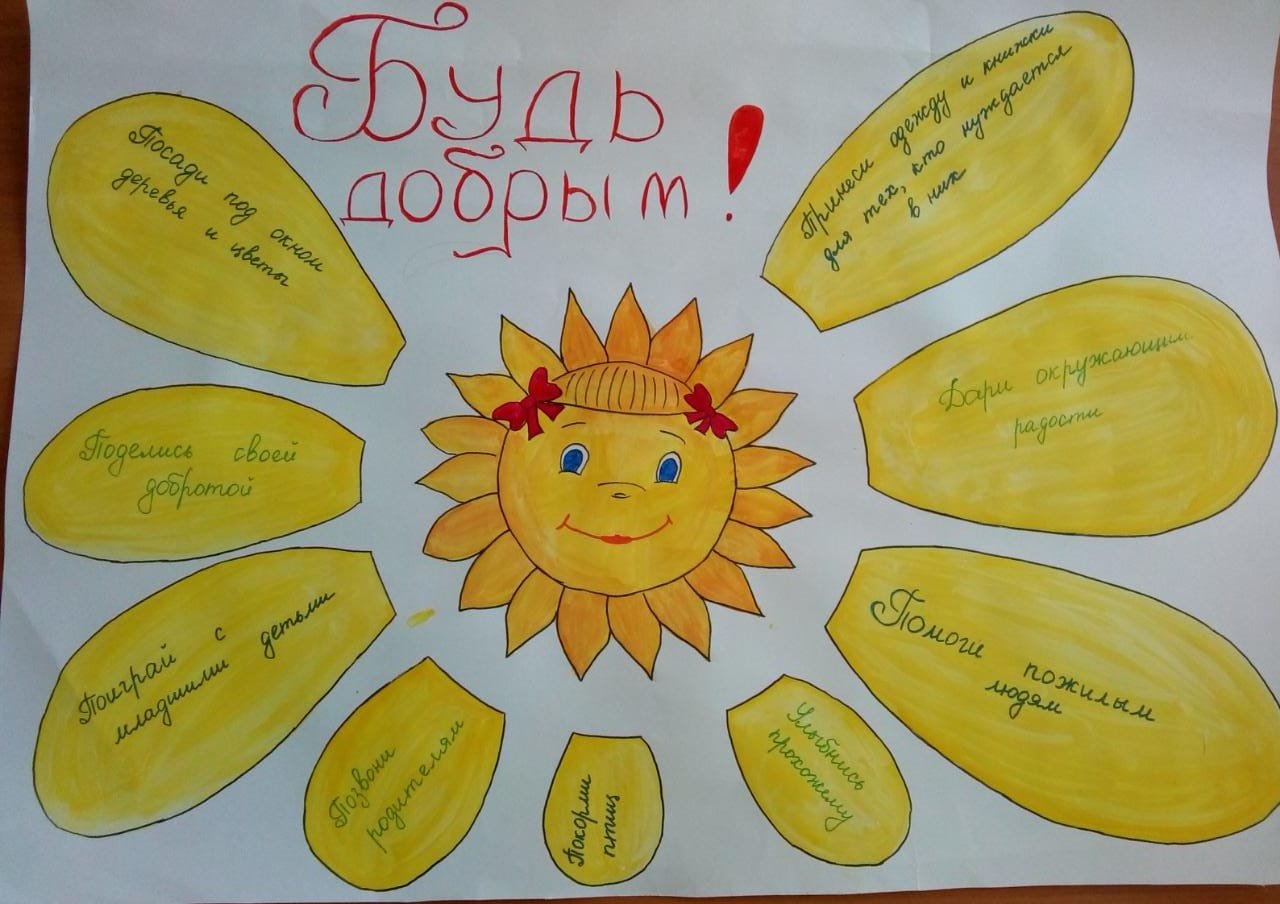 Будь
добрым!
Посади под окном
деревья и цветы
Принеси одежду и книжки
для тех, кто нуждается
в них
Поделись своей
добротой
Дари окружающим
радости
Поиграй с
младшими детьми
Помоги пожилым
людям
Позвони
родителям
Покорми
птиц
Улыбнись
прохожему